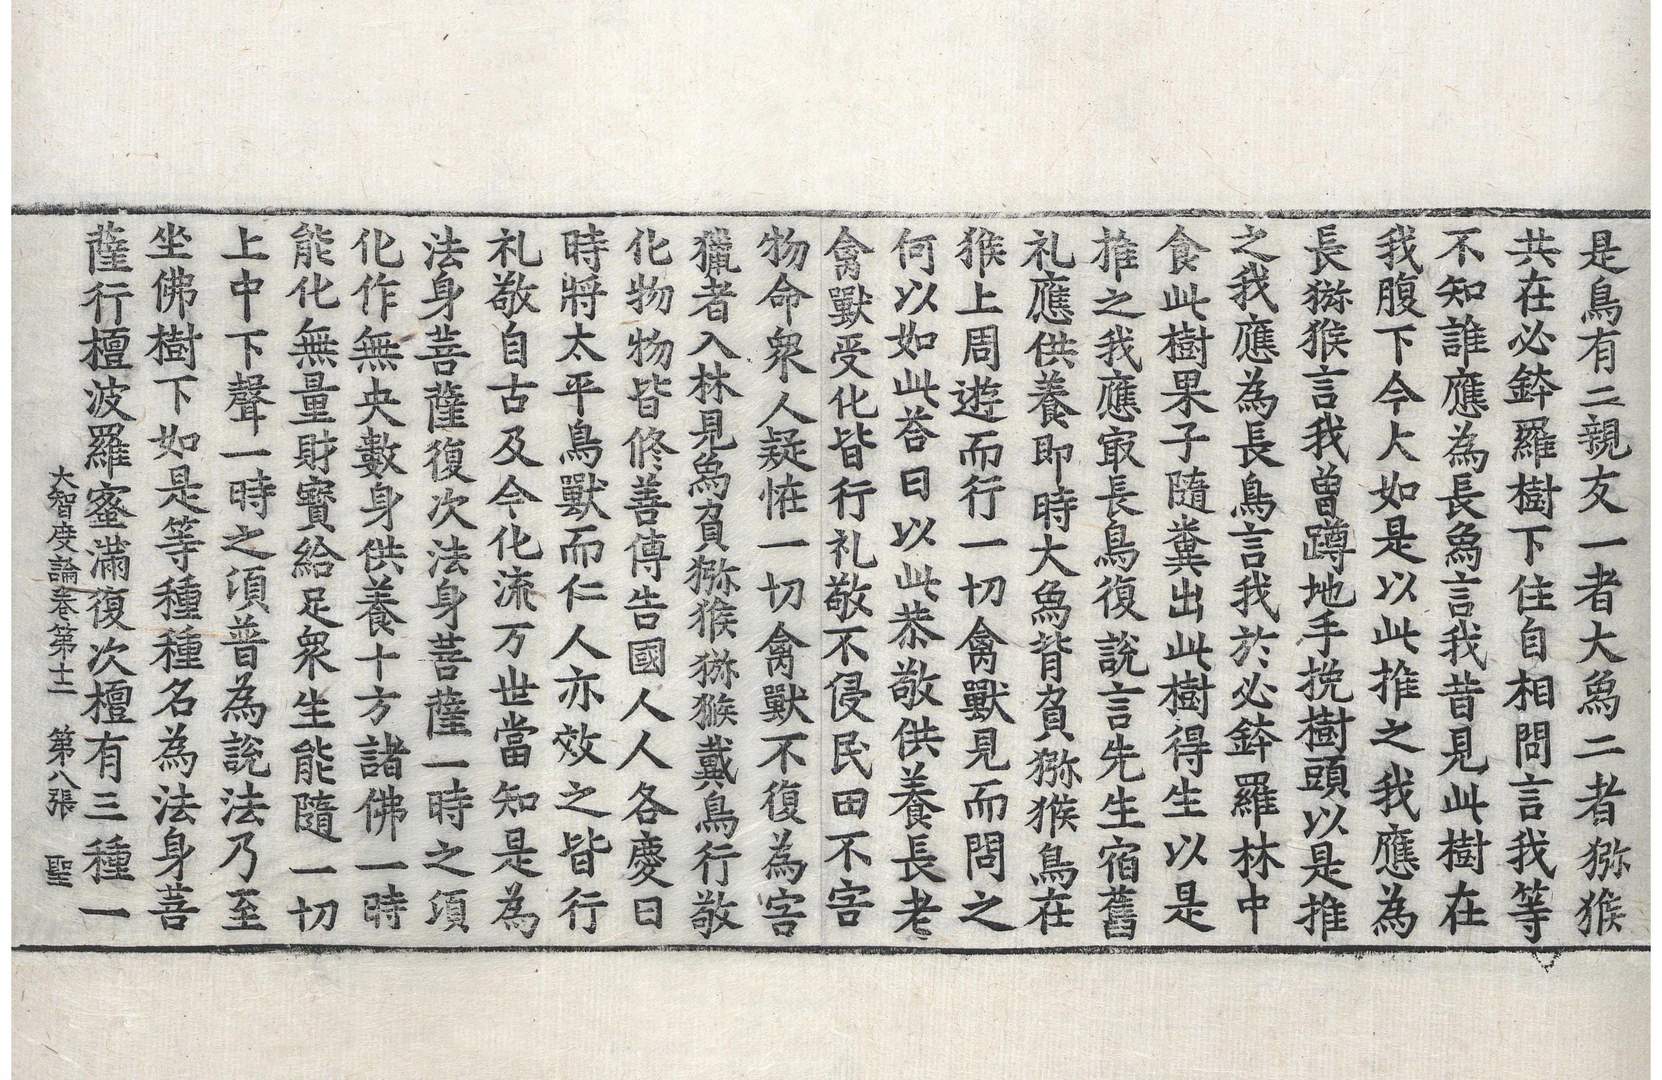 是鳥有二親友一者大象二者獼猴
共在必鉢羅樹下住自相問言我等
不知誰應為長象言我昔見此樹在
我腹下今大如是以此推之我應為
長獼猴言我曾蹲地手挽樹頭以是推
之我應為長鳥言我於必鉢羅林中
食此樹果子隨糞出此樹得生以是
推之我應㝡長鳥復說言先生宿舊
礼應供養即時大象背負獼猴鳥在
猴上周遊而行一切禽獸見而問之
何以如此荅曰以此恭敬供養長老
禽獸受化皆行礼敬不侵民田不害
物命衆人疑恠一切禽獸不復為害
獵者入林見象負獼猴獼猴戴鳥行敬
化物物皆脩善傳告國人人各慶曰
時將太平鳥獸而仁人亦效之皆行
礼敬自古及今化流万世當知是為
法身菩薩復次法身菩薩一時之頃
化作無央數身供養十方諸佛一時
能化無量財寶給足衆生能隨一切
上中下聲一時之頃普為說法乃至
坐佛樹下如是等種種名為法身菩
薩行檀波羅蜜滿復次檀有三種一
大智度論卷第十二 第八張 聖